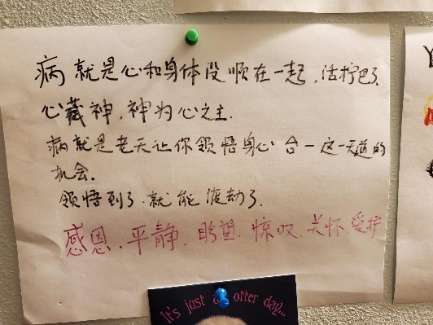 病就是心和身体没顺在一起,活拧巴了
心藏神,神为心之主.
病就是老天让你领悟身心合一这一天道的
机会.
领悟到了.就能渡劫了.
感恩.平静.盼望.惊叹.关怀.爱护
It's just otter day...